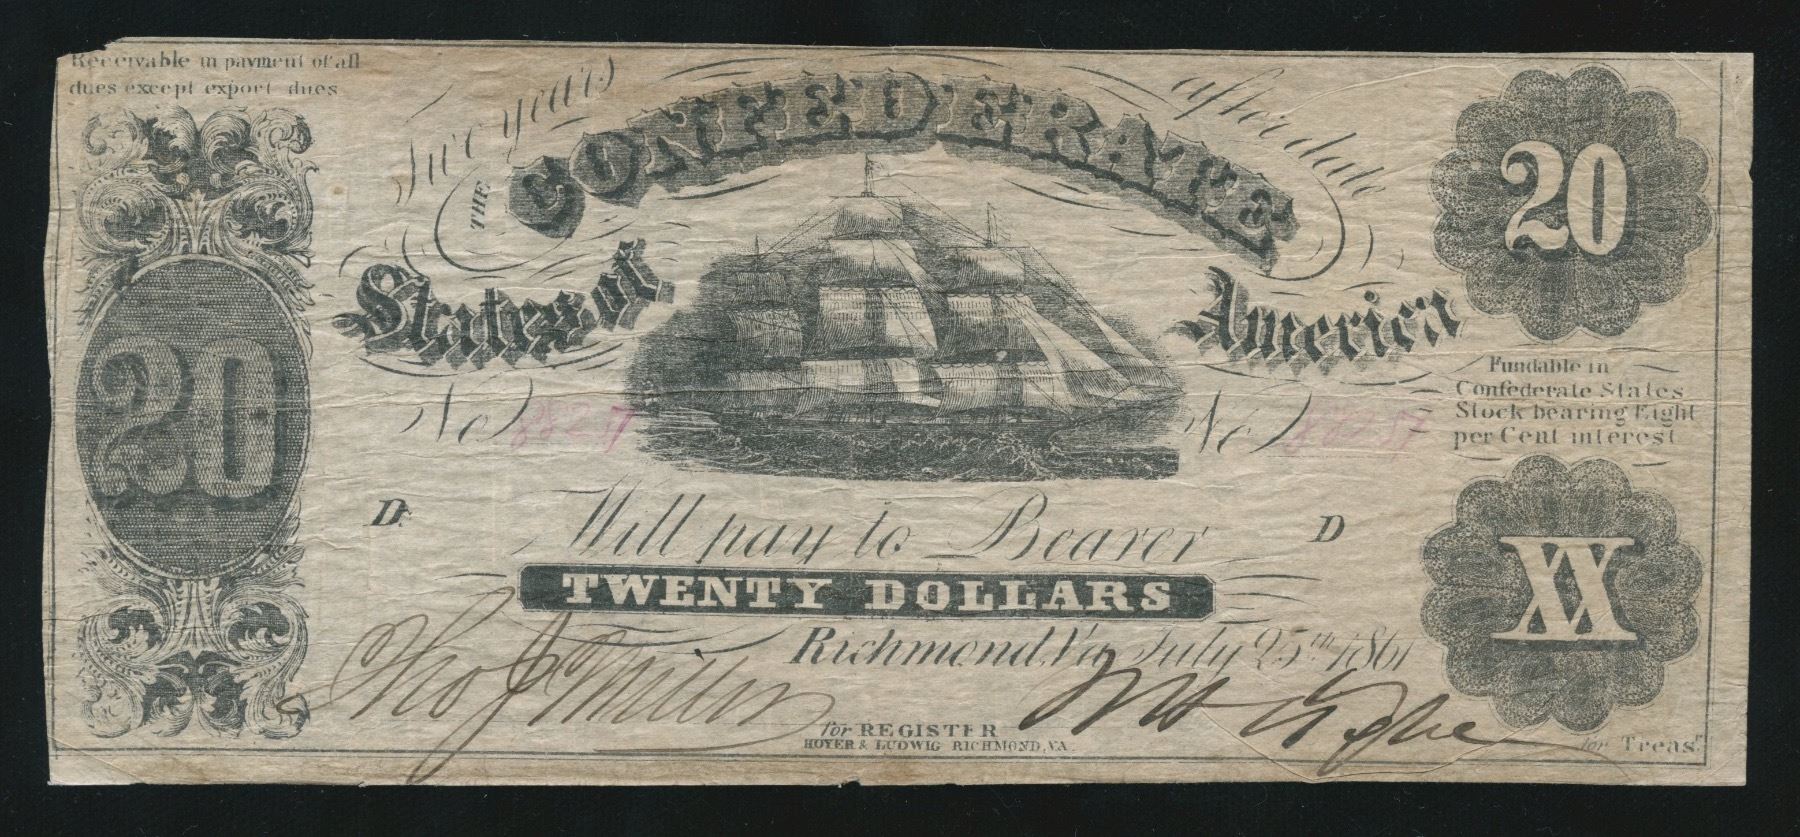 Receivable in payment of all
dues except export dues
Two years after date
THE CONFEDERATE
States of America
20
20
No 88257
No 88257
Fundable in
Confederate States
Stock bearing Eight
per Cent interest
D.
Will pay to Bearer
D
TWENTY DOLLARS
XX
Richmond, Va July 25th 1861
Tho J Miller
for REGISTER
HOYER & LUDWIG RICHMOND, VA
for Treasr.